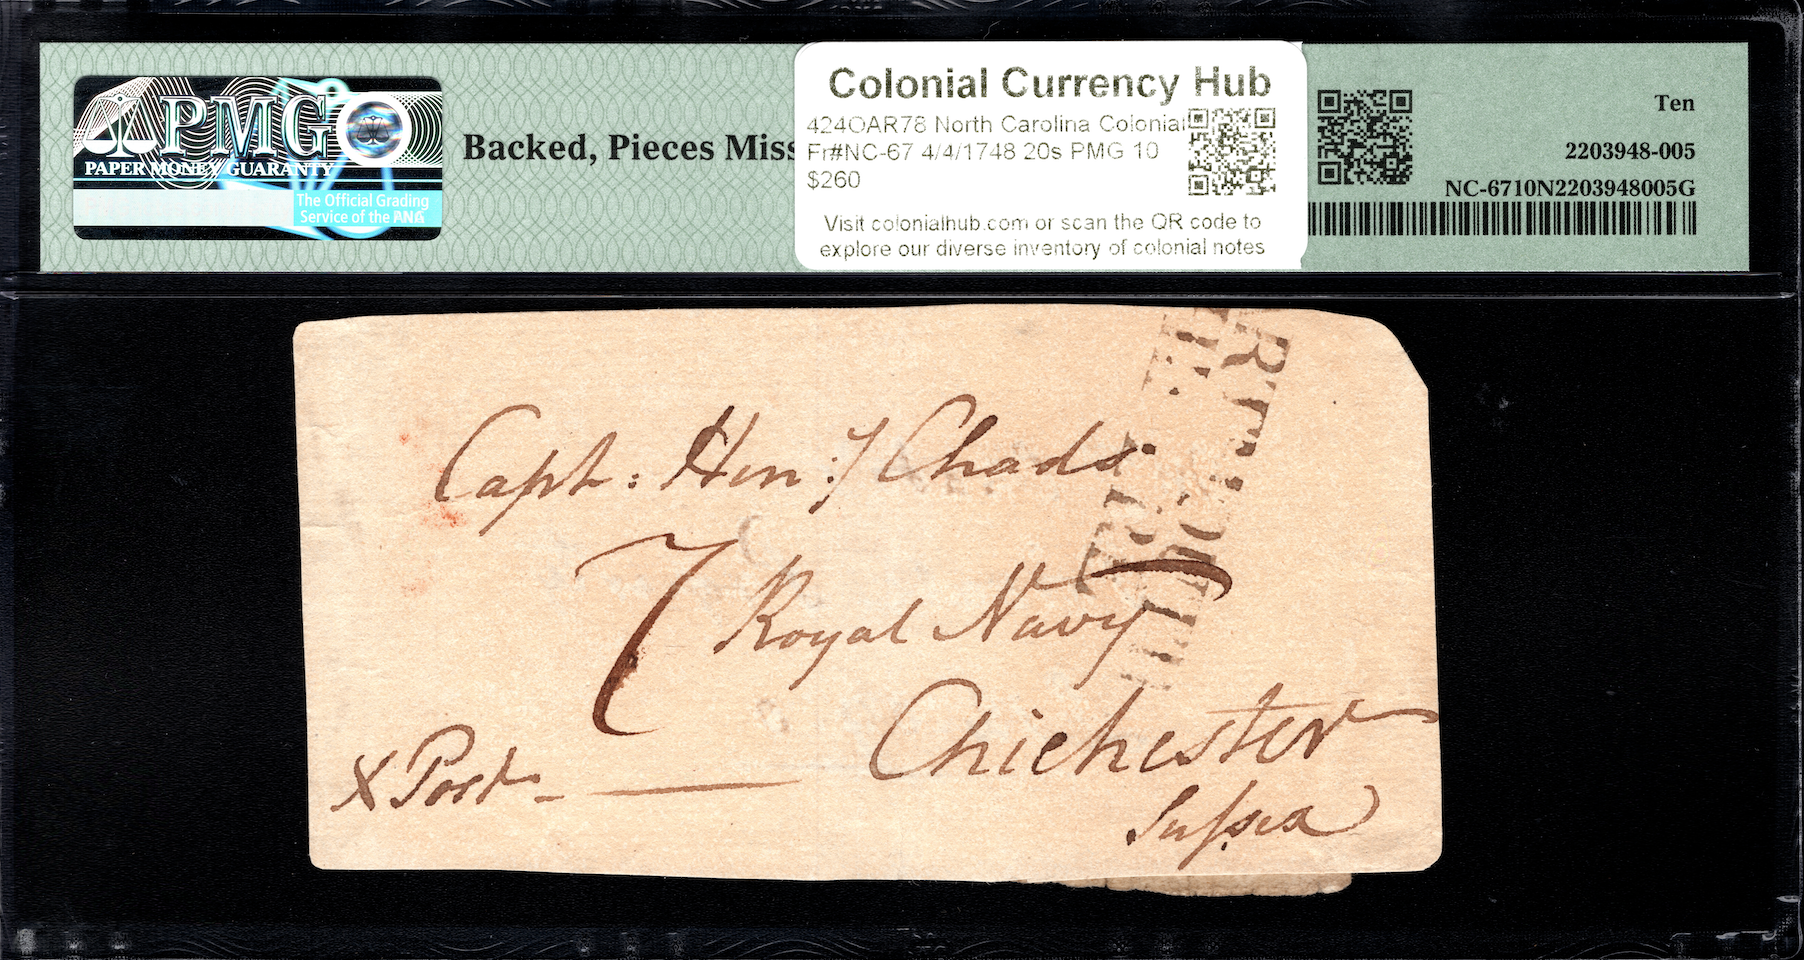 PMG
PAPER MONEY GUARANTY
The Official Grading
Service of the ANA
Backed, Pieces Miss
Colonial Currency Hub
424OAR78 North Carolina Colonial
Fr#NC-67 4/4/1748 20s PMG 10
$260
Visit colonialhub.com or scan the QR code to
explore our diverse inventory of colonial notes
Ten
2203948-005
NC-6710N2203948005G
Capt: Hen:y Chads
7 Royal Navy
Chichester
X Post
Sussex